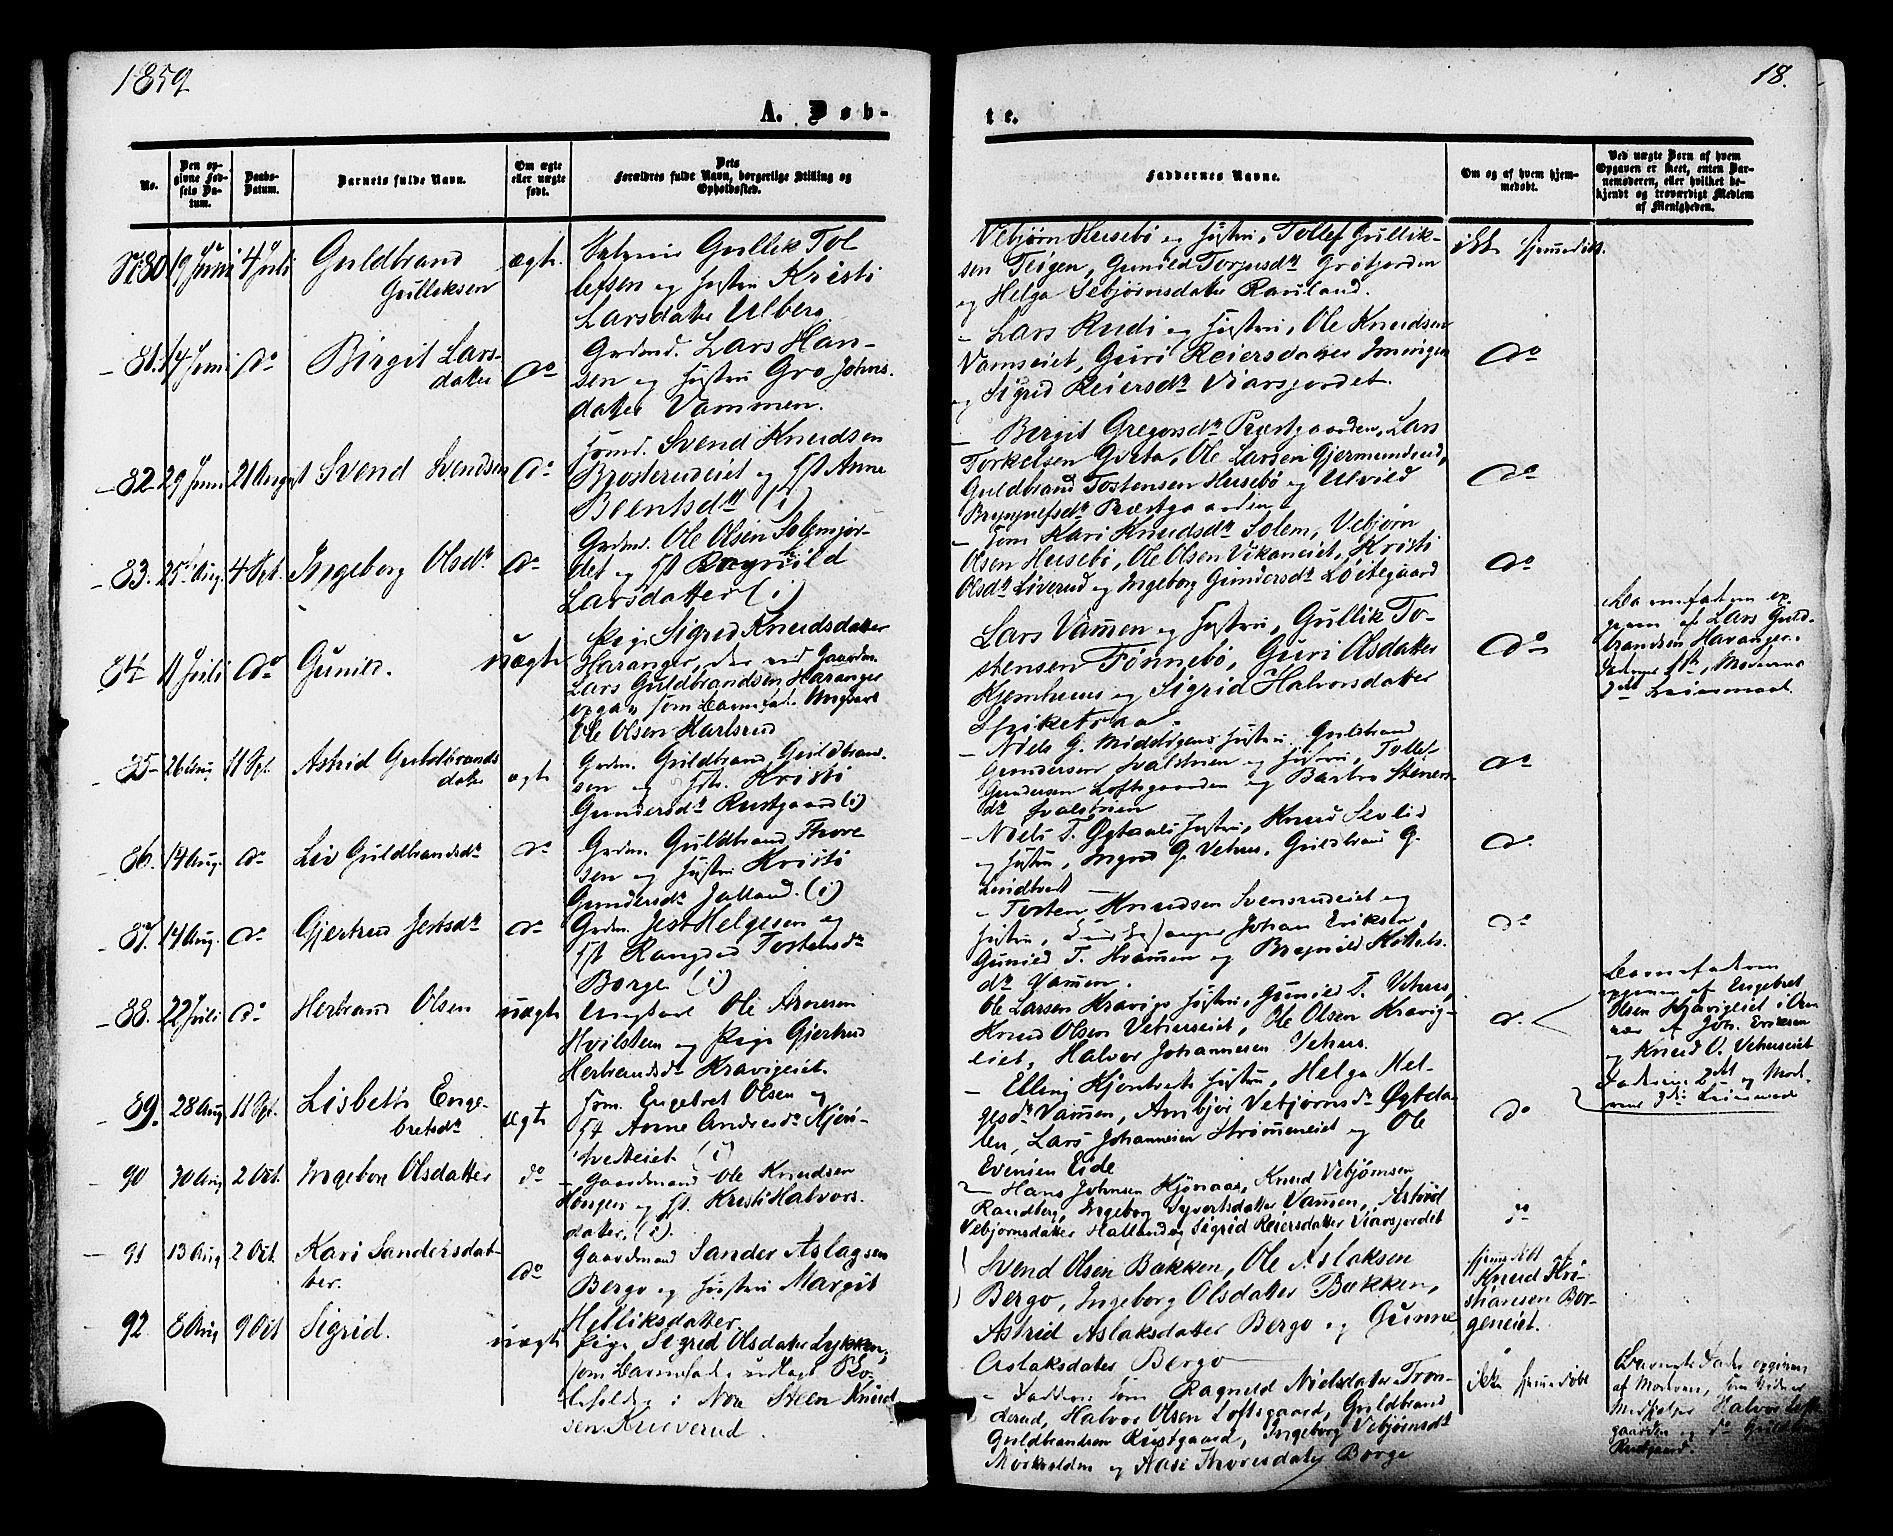 1859
18.
A. Døb-
te.
No.
Den op-
givne Fød-
sels Da-
tum.
Daabs-
Datum.
Barnets fulde Navn.
Om ægte
eller uægte
født.
Dets
Forældres fulde Navn, borgerlige Stilling og
Opholdssted.
Faddernes Navne.
Om og af hvem hjem-
medøbt.
Ved uægte Børn af hvem
Opgaven er skeet, enten Bar-
nemoderen, eller hvilket be-
kjendt og troværdigt Medlem
af Menigheden.
80 19 Juni 4 Juli Guldbrand
Gulliksen
ægte
Gullik Tol
lefsen og Hustru Kristi
Larsdatter Ulberg
Vebjørn Husebø og Hustru, Tollef Gullik-
sen Teigen, Gunild Torjusdr Grøtjorden
og Helga Sebjørnsdatter Rauland.
ikke hjemmedøbt.
81. 14 Juni do Birgit Lars-
datter
do
Grdmd. Lars Han-
sen og Hustru Gro Johns-
datter Vammen.
- Lars Rudi og Hustru, Ole Knudsen
Vamseiet, Guri Reiersdatter
og Sigrid Reiersdr Viarsjordet.
do
82 29 Juni 21 August Svend Svendsen do
Svend Knudsen
Brosterudeiet og Hst Anne
Beentsdr (i)
- Bergit Gregorsdr Præstgaarden, Lars
Torkelsen Gvæta, Ole Larsen Gjermundrud,
Guldbrand Tostensen Husebø og Ulvild
Brynjulfsdr Præstgaarden
do
83. 25 Aug. 4 Spt. Ingeborg Olsdr do
Grdmd. Ole Olsen Solemsjor-
det og Hst Ragnild
Larsdatter (i)
- Kari Knudsdr Solem, Vebjørn
Olsen Husebø, Ole Olsen Vikaneiet, Kristi
Olsdr Løverud og Ingeborg Gundersdr Løitegaard
do
84 11 Juli do Gunild. uægte
Pige Sigrid Knudsdatter
Haranger, der ved Gaardm.
Lars Guldbrandsen Haranger
opgav som Barnefad. Ungkarl
Ole Olsen Harlsrud
Lars Vammen og Hustru, Gullik To-
stensen Tønnebø, Guri Olsdatter
Kjemhuus og Sigrid Halvorsdatter
Spiketraa.
do
Barnefaderen op-
given af Lars Guld-
brandsen Haranger.
Faderens 1ste, Moderens
3die Leiermaal.
85 26 Aug 11 Spt. Astrid Guldbrands
datter
ægte
Grdm. Guldbrand Guldbrand-
sen og Hst. Kristi
Gundersdr Rustgaard (i)
- Niels G. Middtigens Hustru, Guldbrand
Gundersen og Hustru, Tollef
Gundersen Loftsgaarden og Barbro Steners-
dr
do
86. 14 Aug. do Liv Guldbrandsdr do
Grdm. Guldbrand Thore
sen og Hustru Kristi
Gundersdr (i)
- Niels T. Øgtaals Hustru, Knud Sevlid
og Hustru, Ingrid G. Vehus, Guldbrand G.
do
87. 14 Aug. do Gjertrud Jensdr do
Grdm. Helgesen og
Hst Rangdid Tostensdr
Borge (i)
- Tosten Knudsen Svensrudeiet og
Hustru, Johan Eriksen,
Gunild T. Vammen og
dr Vammen.
do
88. 22 Juli do Herbrand Olsen uægte
Ungkarl Ole Arnesen
Hvilsteen og Pige Gjertrud
Herbrandsdr Kravigeiet.
Ole Larsen Kravigs Hustru, Gunild T. Vehus,
Knud Olsen Vehuseiet, Ole Olsen Kravig-
eiet, Halvor Johannesen Vehus.
do
Barnefaderen
opgiven af Engebret
Olsen Kravigeiet i
af Joh. Eriksen
og Knud O. Vehuseiet
Faderens 2det og Mod-
erens 3die Leiermaal
89. 28 Aug 11 Spt. Lisbeth Enge-
bretsdr
ægte
Engebret Olsen og
Hst Anne Andresdr Kjøn-
(i)
- Elling Kjøntveits Hustru, Helga Hel-
gesdr Vammen, Ambjør Vebjørnsdr Øgtda-
len, Lars Johannesen Strømmeneiet og Ole
Evensen Eide
do
90 30 Aug 2 Oct. Ingeborg Olsdatter do
- Gaardmand Ole Knudsen
Hougen og Hst. Kristi Halvors-
datter, (i).
- Hans Johnsen Kjønaas, Knud Vebjørnsen
Randberg, Ingeborg Syvertsdatter Vammen, Astrid
Vebjørnsdatter Halland og Sigrid Reiersdatter Viarsjordet
do
91 13 Aug 2 Oct. Kari Sandersdat-
ter.
do
Gaardmand Sander Aslagsen
Bergo og Hustru Margit
Helliksdatter.
Svend Olsen Bakken, Ole Aslaksen
Bergo, Ingeborg Olsdatter Bakken,
Astrid Aslaksdatter Bergo og Gunne
Aslaksdatter Bergo
hjemmedøbt
Knud Kri-
stiansen Bor-
geneiet.
92. 8 Aug 9 Oct Sigrid. uægte
Pige Sigrid Olsdatter Lykken,
som Barnefad. udlagt
i Nore Steen Knud-
sen Kruverud.
- Faddere som Ragnild Nielsdatter Tron-
derud, Halvor Olsen Loftsgaard, Guldbrand
Guldbrandsen Rustgaard, Ingeborg Vebjørnsdr
Mørkvolden og Aase Thoresdatter Borge
ikke hjemmedøbt
Barnets Fader opgiven
af Moderen, som
Halvor Lofts-
gaarden og do Guldbr.
Rustgaard.